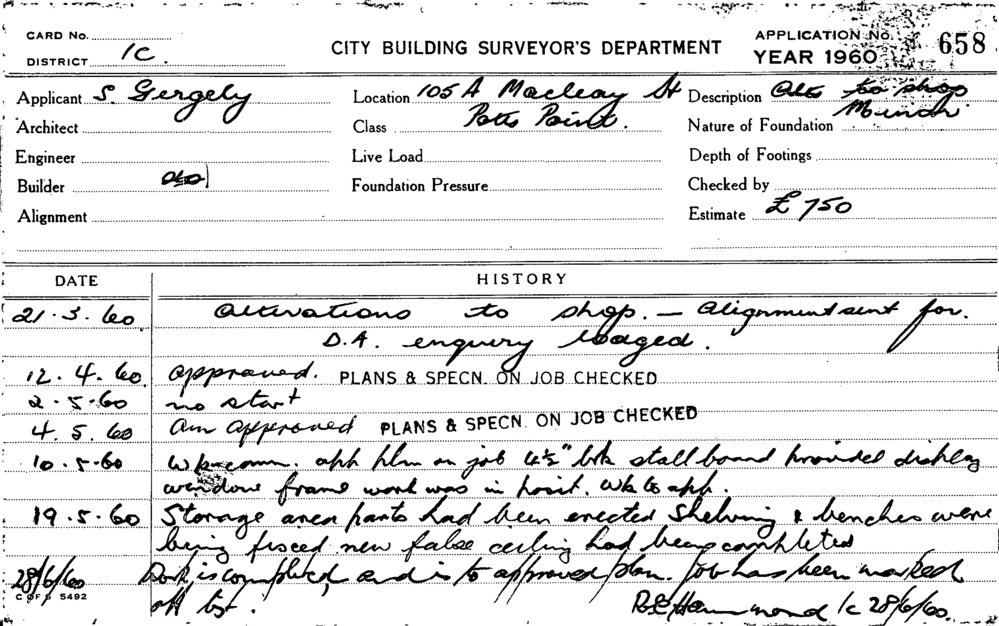 CARD No.
DISTRICT 1C.
CITY BUILDING SURVEYOR'S DEPARTMENT
APPLICATION No. 658
YEAR 1960
Applicant S. Gergely
Location 105A Macleay St
Potts Point.
Description Alts to shop
Architect
Class
Nature of Foundation
Engineer
Live Load
Depth of Footings
Builder do
Foundation Pressure
Checked by
Alignment
Estimate £750
DATE HISTORY
21.3.60 Alterations to shop. — Alignment sent for.
D.A. enquiry lodged.
12.4.60 approved. PLANS & SPECN. ON JOB CHECKED
2.5.60 no start
4.5.60 Am approved PLANS & SPECN. ON JOB CHECKED
10.5.60 Wk comm. app pln on job 4½" brk stallboard provided display
window frame work was in posit. Wk to app.
19.5.60 Storage area parts had been erected Shelving & benches were
being fixed new false ceiling had been completed
28/6/60 Work is completed, and is to approved plan. Job has been marked
off
C OF S 5492
Hammond 1c 28/6/60.